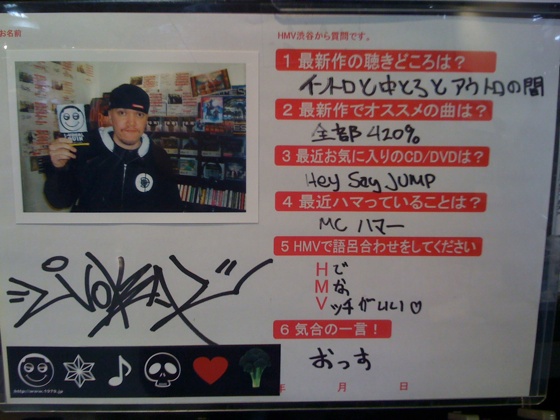 お名前
HMV渋谷から質問です。
1 最新作の聴きどころは?
イントロと中とろとアウトロの間
2 最新作でオススメの曲は?
全部420%
3 最近お気に入りのCD/DVDは?
Hey Say JUMP
4 最近ハマっていることは?
MC ハマー
5 HMVで語呂合わせをしてください
Hで
Mな
Vッチがいい♡
6 気合の一言!
おっす
年 月 日
http://www.1979.jp